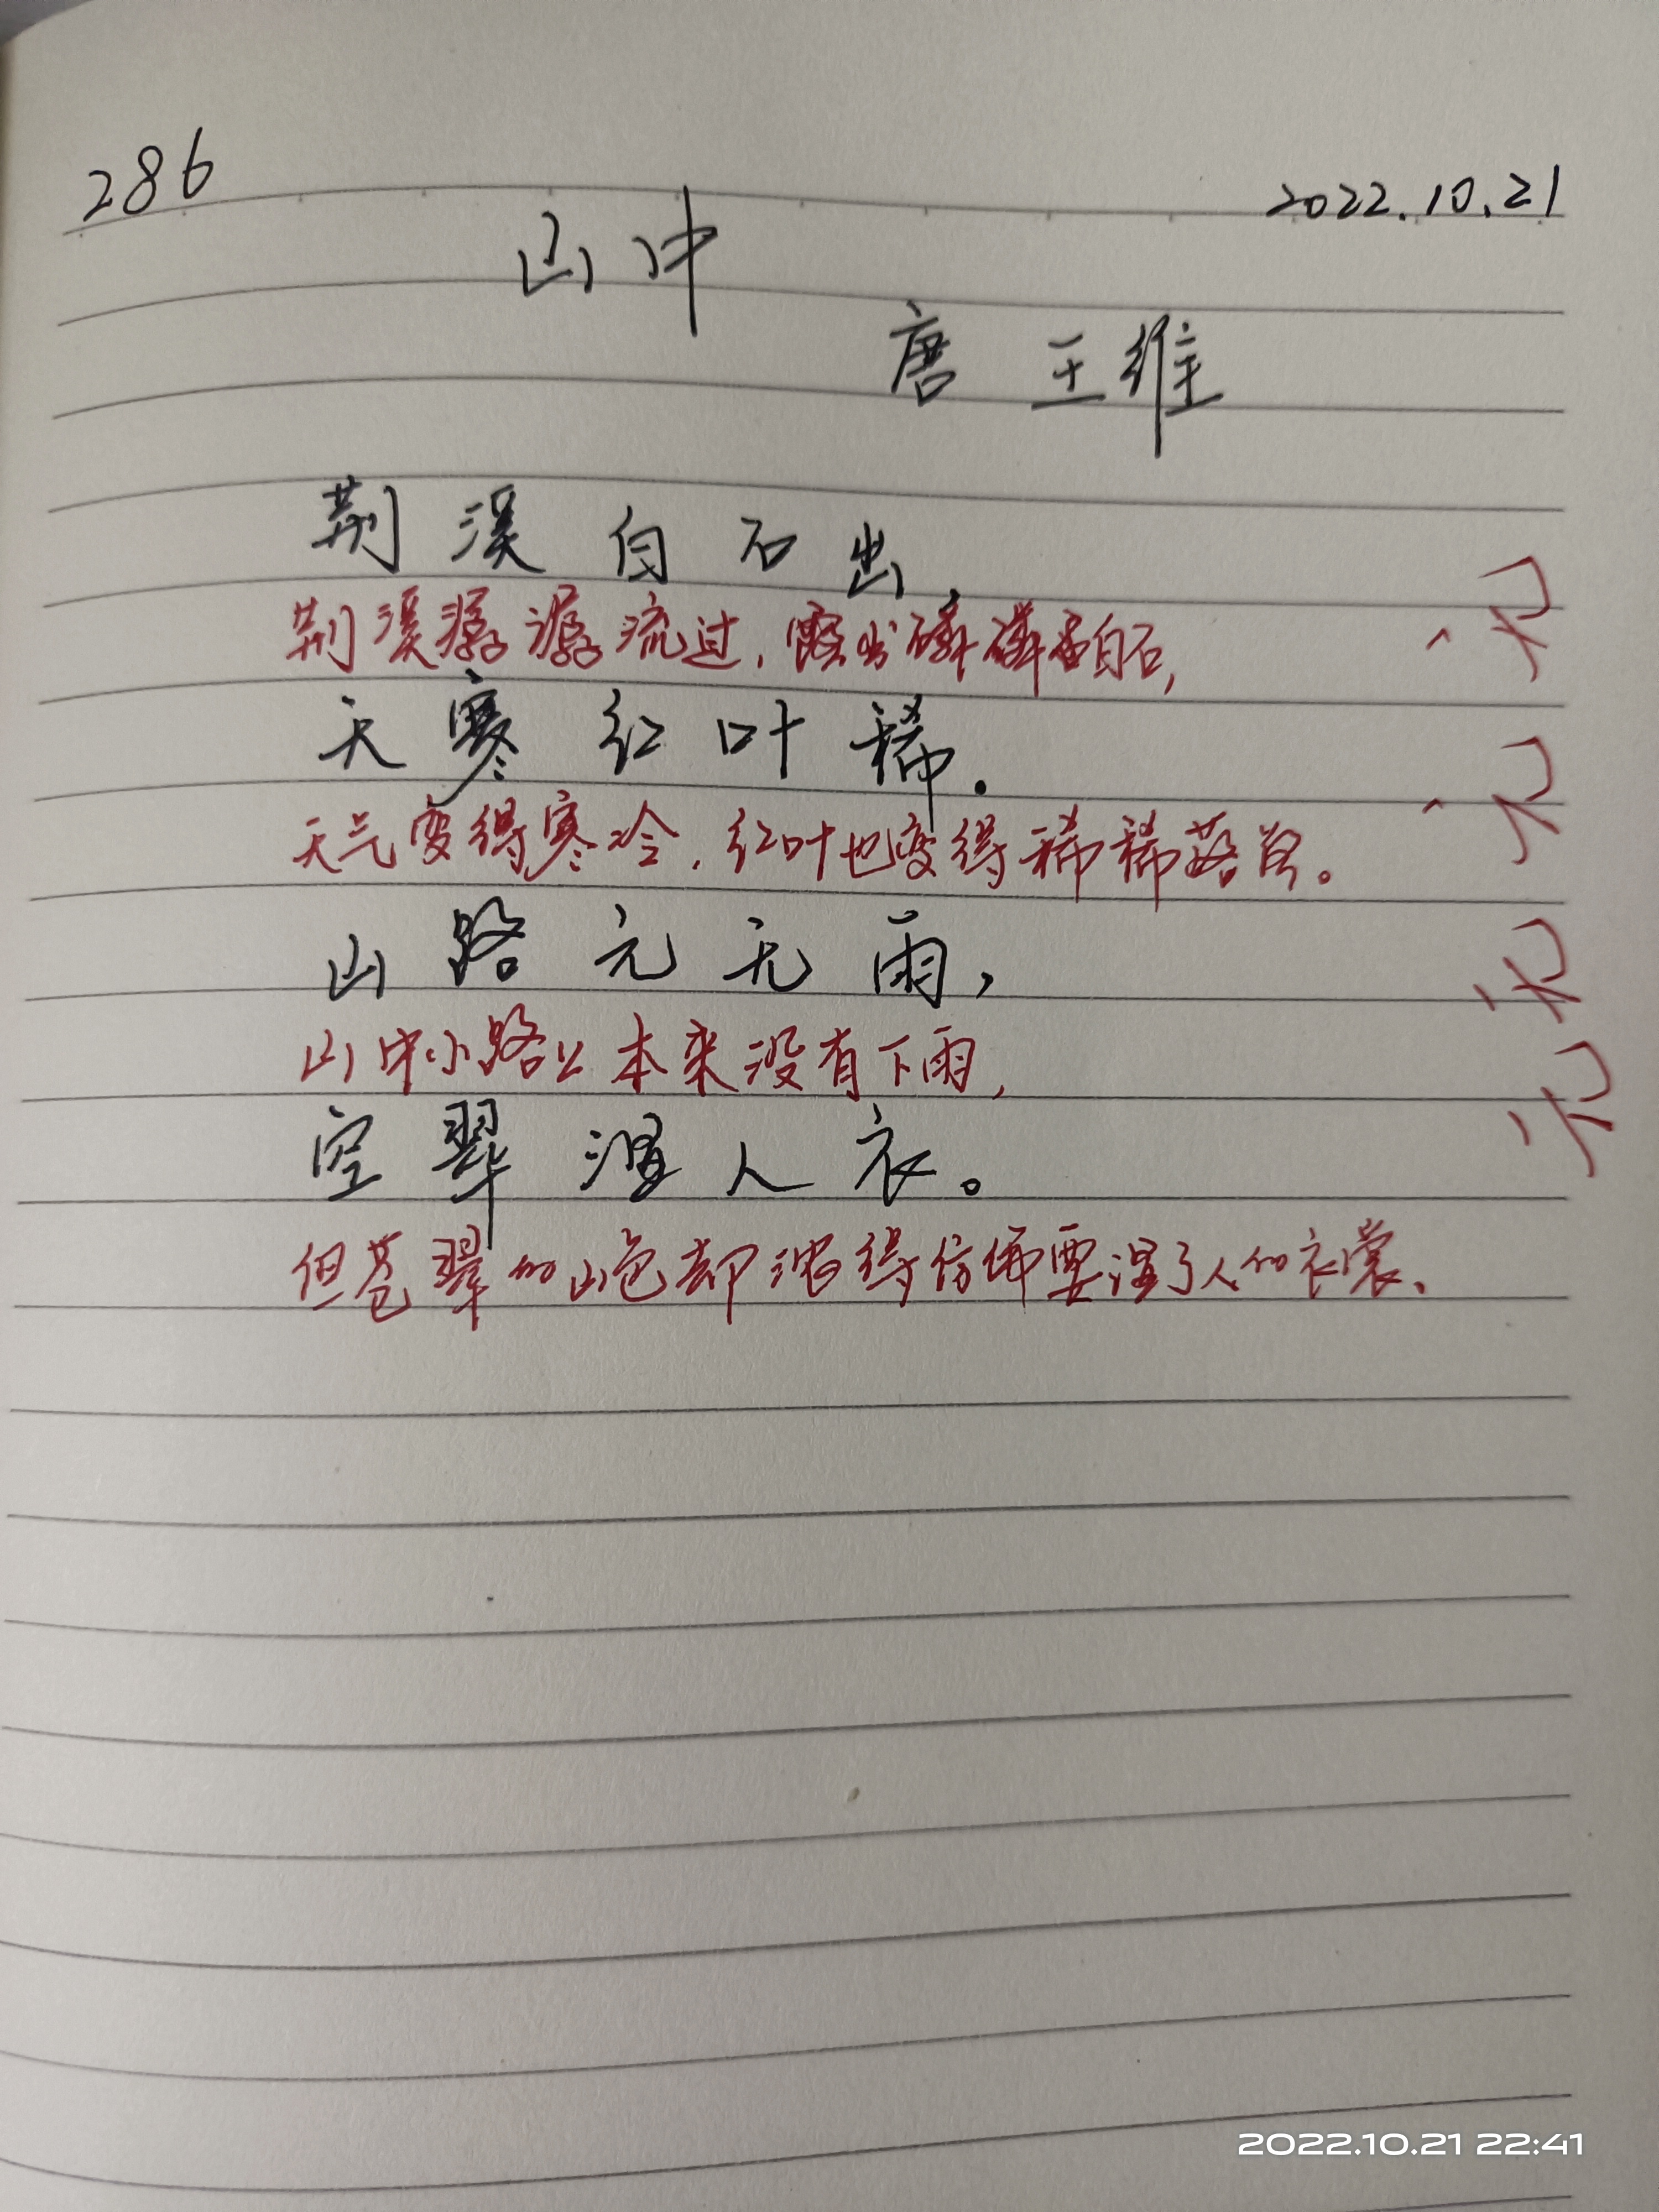 286
2022.10.21
山中
唐 王维
荆溪白石出,
荆溪潺潺流过,露出磷磷白石,
天寒红叶稀.
天气变得寒冷,红叶也变得稀稀落落。
山路元无雨,
山中小路上本来没有下雨,
空翠湿人衣。
但苍翠的山色却浓得仿佛要湿了人的衣裳、
2022.10.21 22:41